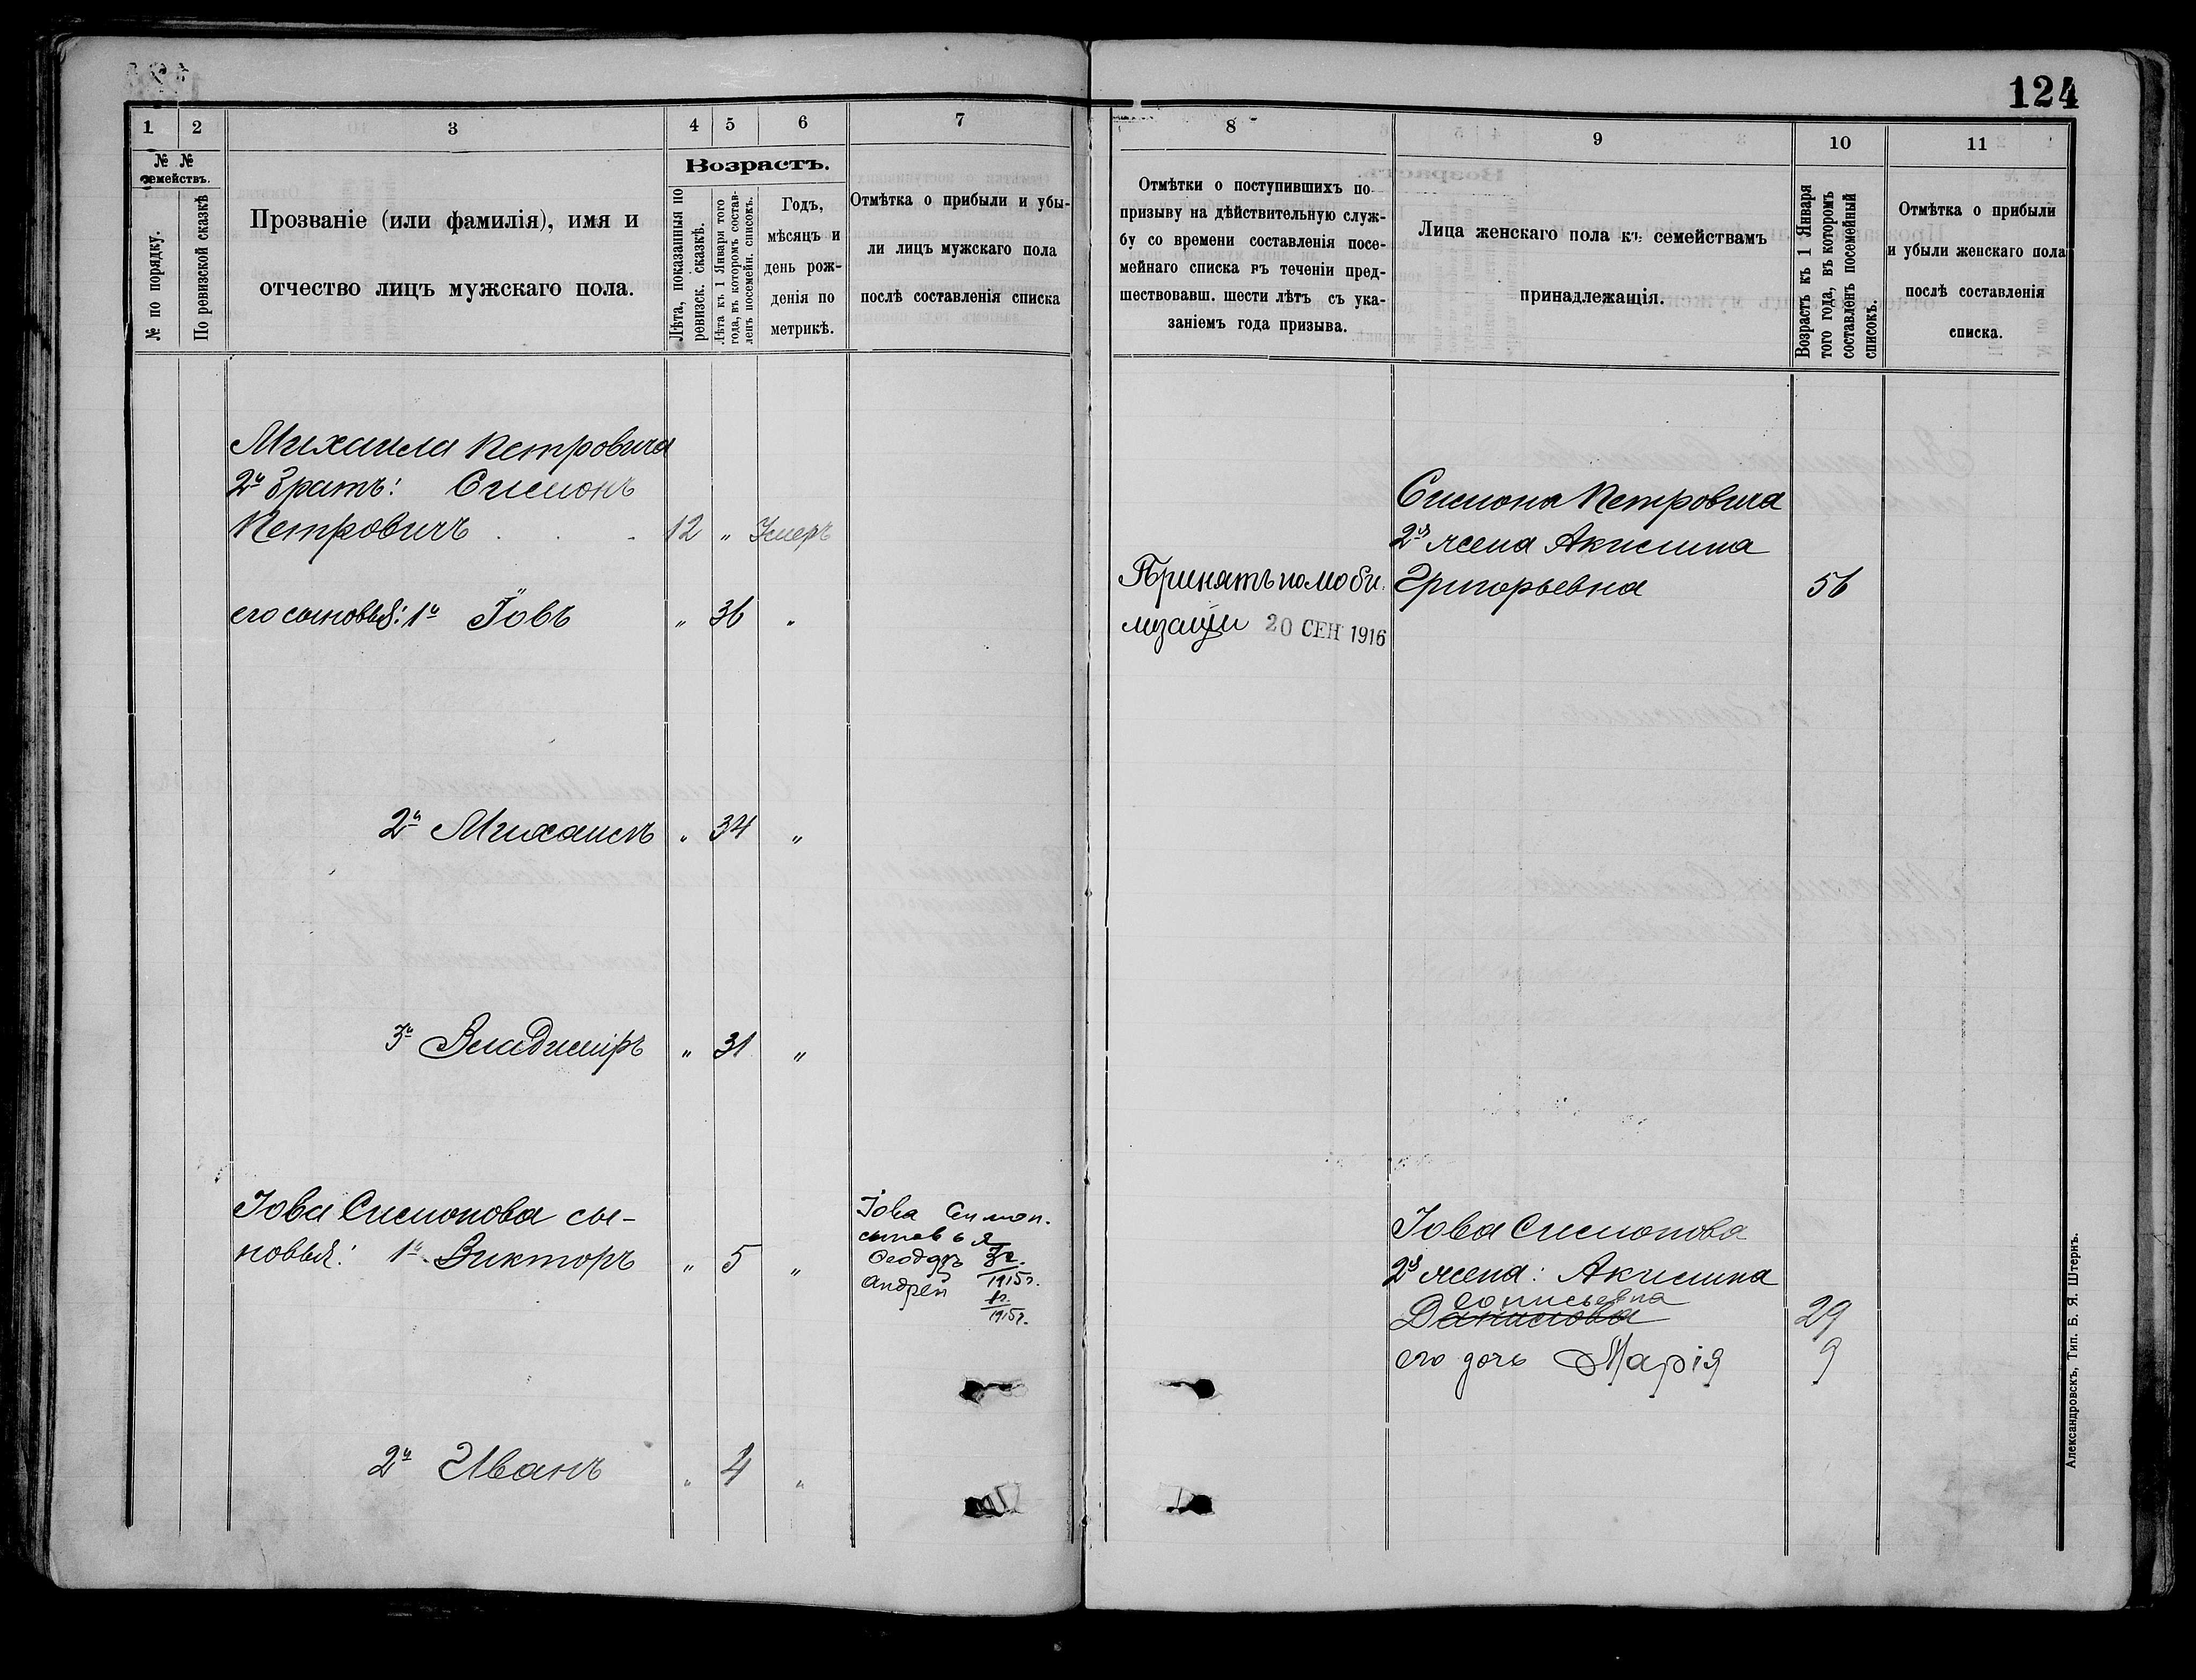 124
1
2
3
4
5
6
7
8
9
10
11
№ №
семействъ.
№ по порядку.
По ревизской сказкѣ
Прозваніе (или фамилія), имя и
отчество лицъ мужскаго пола.
Возрастъ.
Лѣта, показанныя по
ревизск. сказкѣ.
Лѣта къ 1 Января того
года, въ которомъ состав-
ленъ посемейн. списокъ.
Годъ,
мѣсяцъ и
день рож-
денія по
метрикѣ.
Отмѣтка о прибыли и убы-
ли лицъ мужскаго пола
послѣ составленія списка
Отмѣтки о поступившихъ по
призыву на дѣйствительную служ-
бу со времени составленія посе-
мейнаго списка въ теченіи пред-
шествовавш. шести лѣтъ съ ука-
заніемъ года призыва.
Лица женскаго пола къ семействамъ
принадлежащія.
Возрастъ къ 1 Января
того года, въ которомъ
составленъ посемейный
списокъ.
Отмѣтка о прибыли
и убыли женскаго пола
послѣ составленія
списка.
Михаила Петровича
2й братъ: Симонъ
Петровичъ . . 12 " Умеръ
его сыновья: 1й Іовъ " 36 "
2й Михаилъ " 34 "
3й Владиміръ " 31 "
Іова Симонова сы-
новья: 1й Викторъ " 5 "
2й Иванъ " 4 "
Іова Симон.
сыновья
Ѳеодоръ 3г.
1915г.
Андрей 1г.
1915г.
Принятъ по моби
лизаціи 20 СЕН 1916
Симона Петровича
2я жена Акилина
Григорьевна 56
Іова Симонова
2я жена: Акилина
Данилова 29
его дочь Марія 9
Александровскъ, Тип. Б. Я. Штернъ.